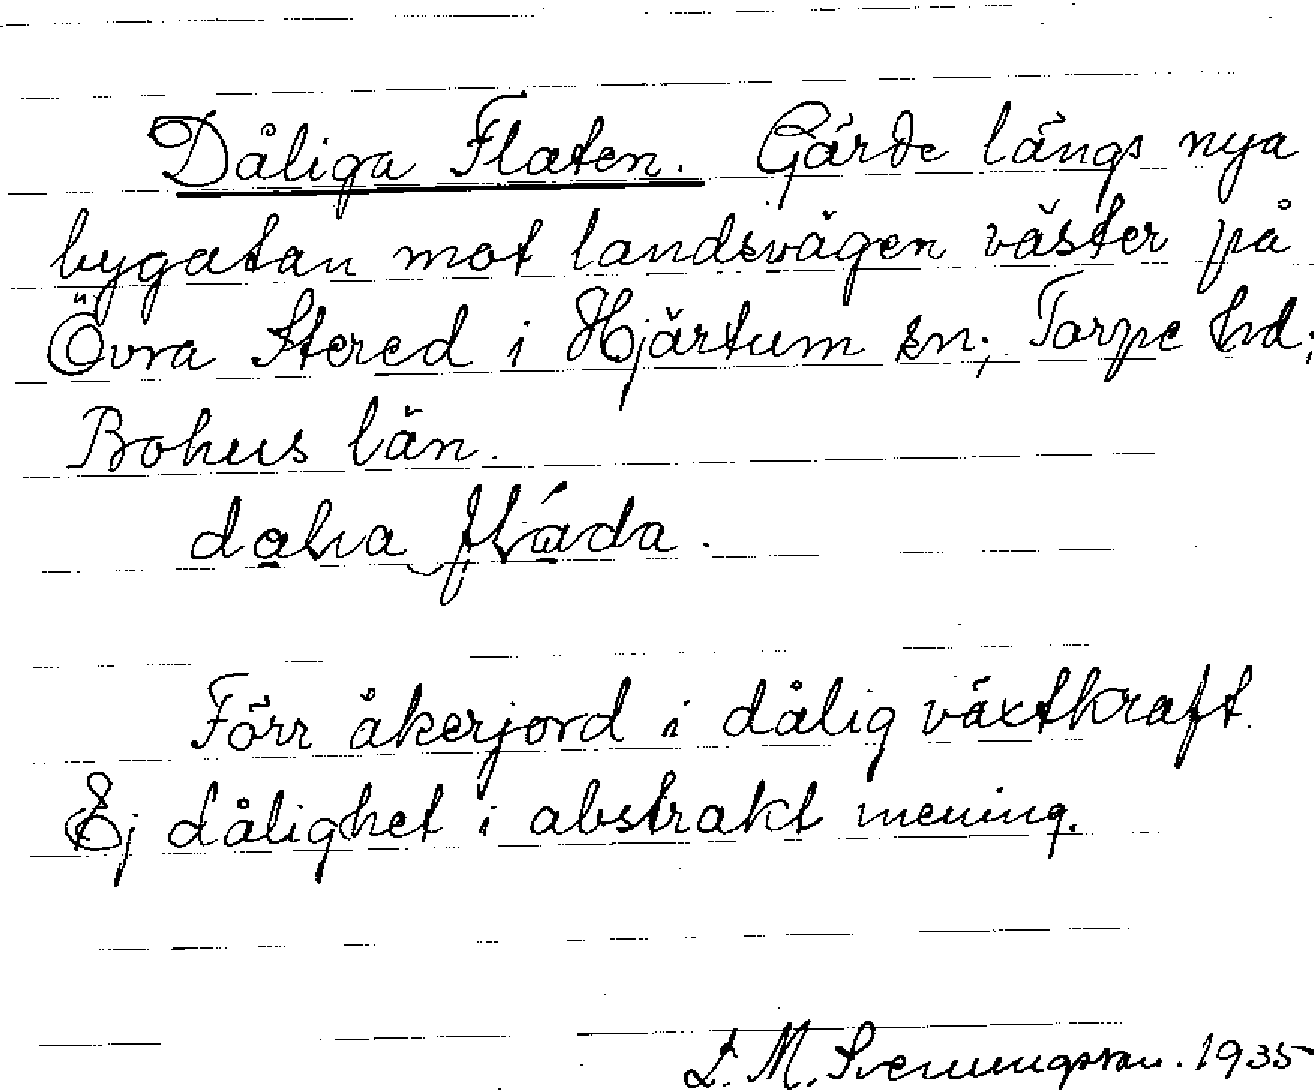 Dåliga Flaten. Gärde längs nya
bygatan mot landsvägen väster på
Övra Stered i Hjärtum sn; Torpe hd;
Bohus län.
Förr åkerjord i dålig växtkraft.
Ej dålighet i abstrakt mening.
L. M. Svenungsson. 1935